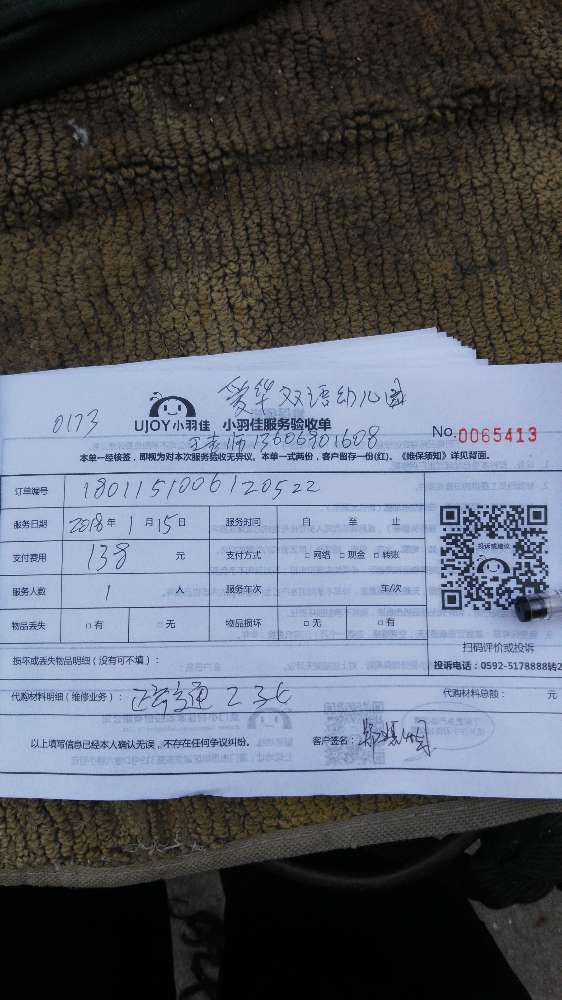 爱华双语幼儿园
0173
UJOY小羽佳 小羽佳服务验收单
王老师13606901608
No.0065413
本单一经核签，即视为对本次服务验收无异议。本单一式两份，客户留存一份(红)。《维保须知》详见背面。
订单编号 1801151006120522
服务日期 2018年1月15日 服务时间 自 至 止
支付费用 138 元 支付方式 □网络 □现金 □转账
服务人数 1 人 服务车次 车/次
物品丢失 □有 □无 物品损坏 □无 □有
投诉或建议
扫码评价或投诉
损坏或丢失物品明细（没有可不填）：
投诉电话：0592-5178888转2
代购材料明细（维修业务）： 疏通 代购材料总额： 元
以上填写信息已经本人确认无误，不存在任何争议纠纷。 客户签名：